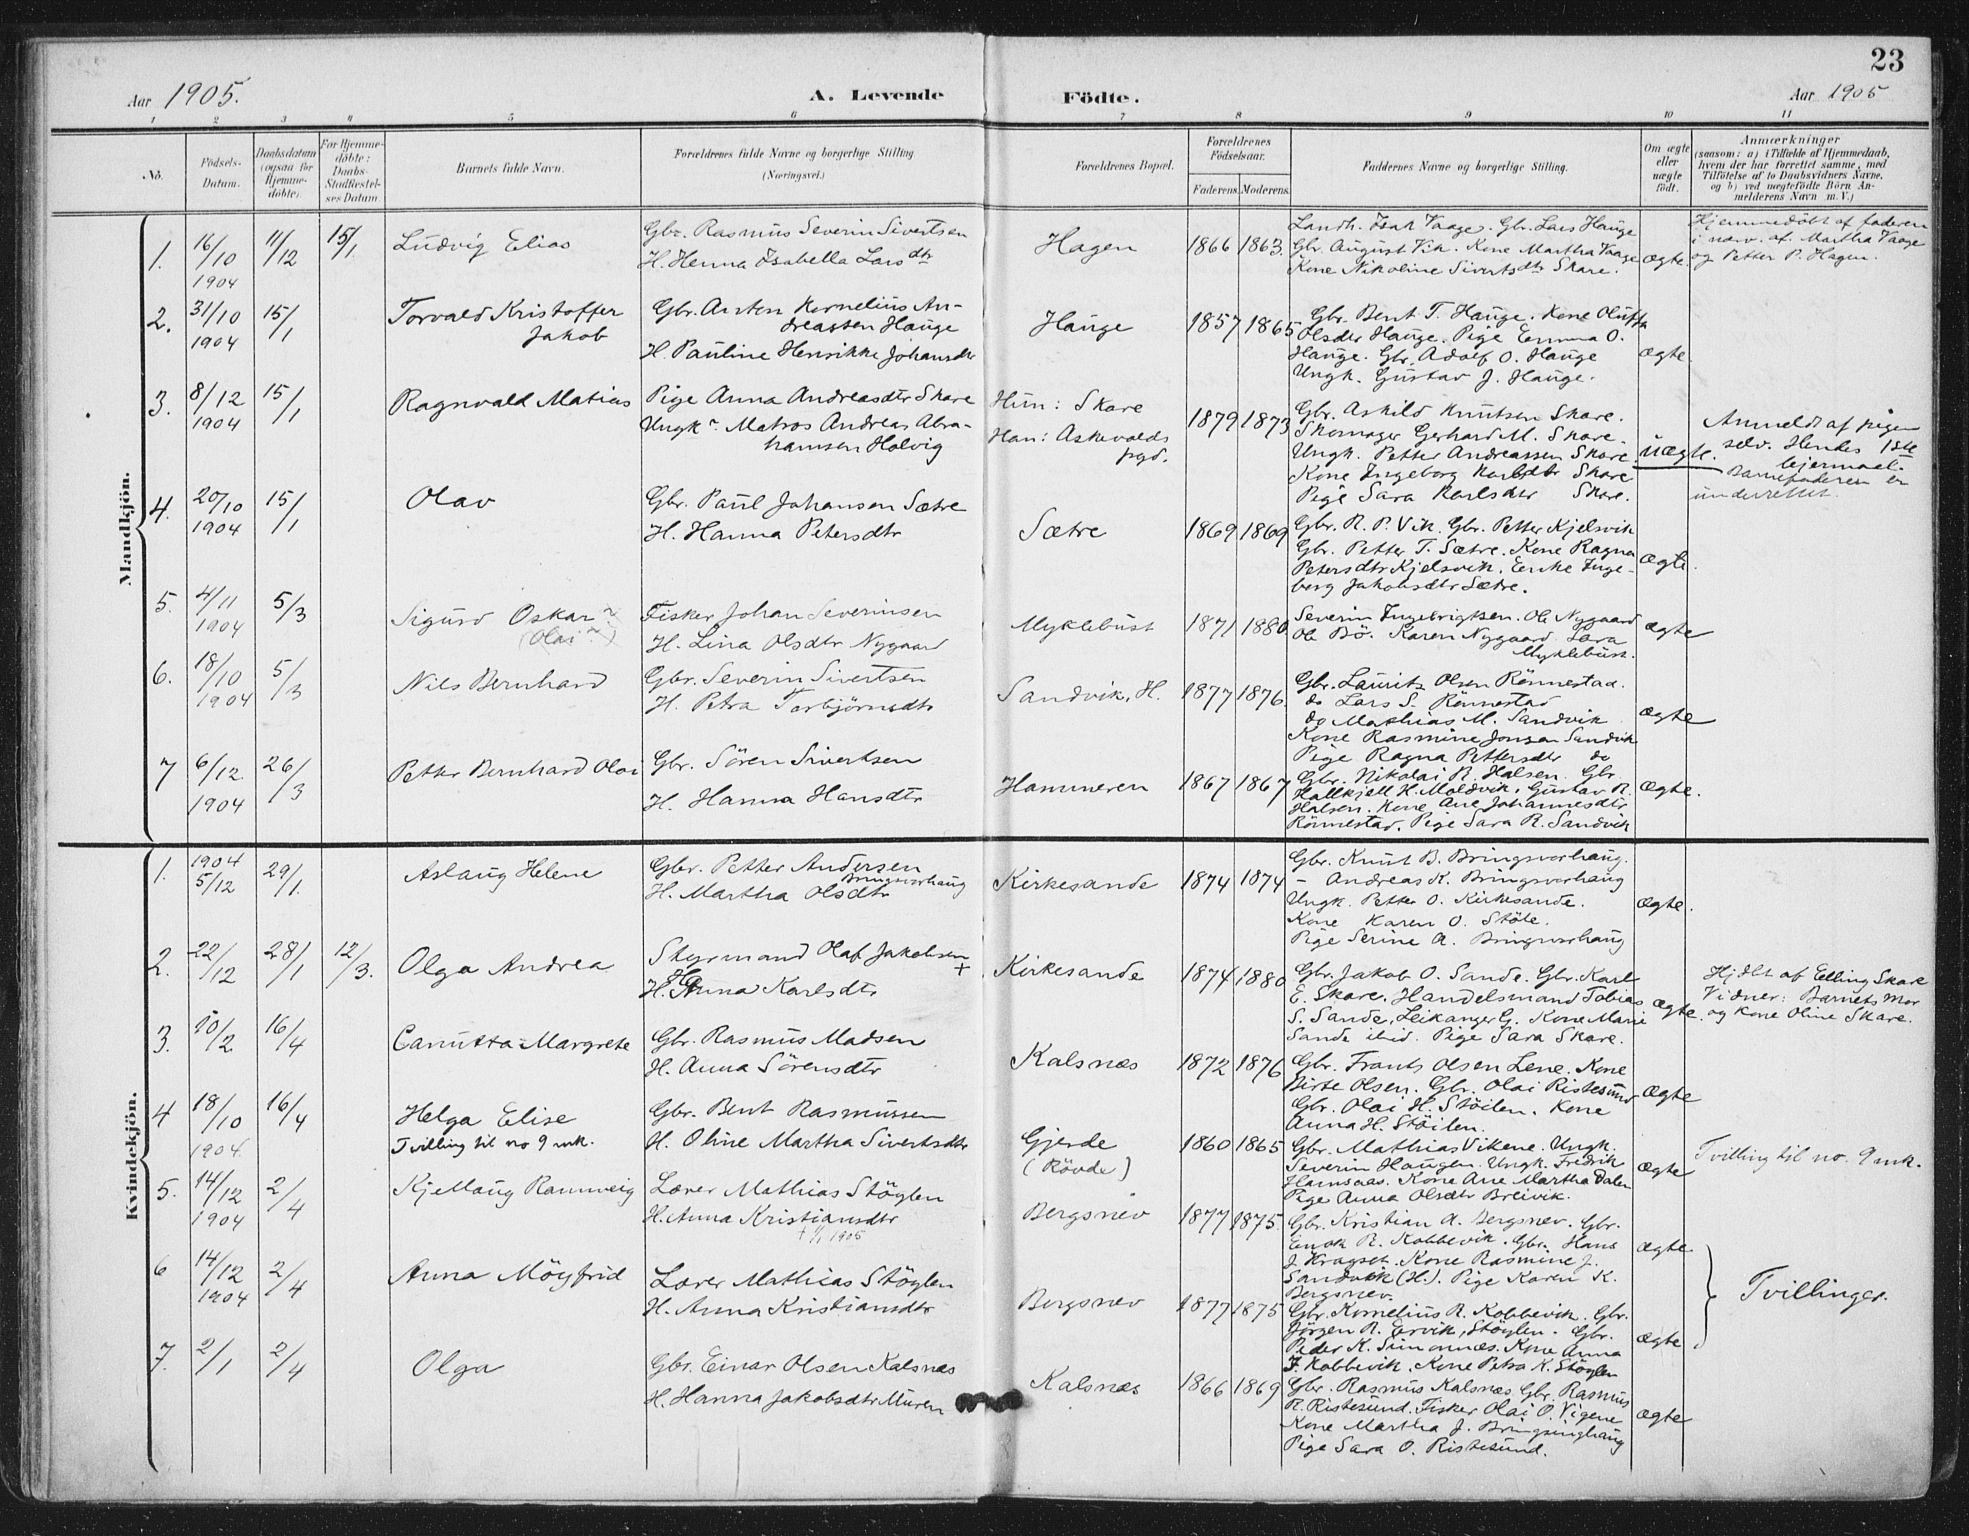 23
Aar 1905.
A. Levende
Födte.
Aar 1905
1 2 3 4 5 6 7 8 9 10 11
No.
Födsels-
Datum.
Daabsdatum
(ogsaa for
Hjemme-
döbte).
For Hjemme-
döbte:
Daabs-
Stadfæstel-
ses Datum
Barnets fulde Navn.
Forældrenes fulde Navne og borgerlige Stilling
(Næringsvei.)
Forældrenes Bopæl.
Forældrenes
Födselsaar.
Faderens. Moderens.
Faddernes Navne og borgerlige Stilling.
Om ægte
eller
uægte
födt.
Anmærkninger
(saasom: a) i Tilfælde af Hjemmedaab,
hvem der har forrettet samme, med
Tilföielse af to Daabsvidners Navne,
og b) ved uegtefödte Börn An-
melderens Navn m. V.)
Mandkjön.
1. 16/10 1904 11/12 15/1. Ludvig Elias
Gbr. Rasmus Severin Sivertsen
H. Henna Isabella Larsdtr
Hagen 1866 1863.
Landh. Isak Vaage. Gbr. Lars Hauge
Gbr. August Vik. Kone Martha Vaage
Kone Nikoline Sivertsdtr Skare.
ægte.
Hjemmedöbt af faderen
i nærv. af Martha Vaage
og Petter P. Hagen.
2. 31/10 1904 15/1 Torvald Kristoffer
Jakob
Gbr. Anton Kornelius An-
dreassen Hauge
H. Pauline Henrikke Johansdtr
Hauge 1857 1865
Gbr. Bent T. Hauge. Kone Oluffa
Olsdtr Hauge. Pige Emma O.
Hauge. Gbr. Adolf O. Hauge
Ungk. Gustav J. Hauge.
ægte.
3. 8/12 1904 15/1 Ragnvald Matias
Pige Anna Andreasdtr Skare
Ungk. Matros Andreas Abra-
hamsen Holvig
Hun: Skare
Han: Askevolds
prgd.
1879 1873
Gbr. Askild Knutsen Skare.
Skomager Gerhard M. Skare.
Ungk. Petter Andreassen Skare
Kone Ingeborg Karlsdtr Skare
Pige Sara Karlsdtr Skare.
uægte.
Anmeldt af pigen
selv. Hendes 1ste
lejermaal.
Barnefaderen er
underrettet.
4. 20/10 1904 15/1 Olav
Gbr. Paul Johansen Sætre
H. Hanna Petersdtr
Sætre 1869 1869
Gbr. R. P. Vik. Gbr. Petter Kjelsvik
Gbr. Petter T. Sætre. Kone Ragna
Petersdtr Kjelsvik. Enke Inge-
borg Jakobsdtr Sætre.
ægte.
5. 4/11 1904 5/3 Sigurd Oskar
(Olai)
Fisker Johan Severinsen
H. Lina Olsdtr Nygaard
Myklebust 1871 1880
Severin Ingebrigtsen. Ole Nygaard
Ole Bö. Karen Nygaard. Sara
Myklebust.
ægte
6. 18/10 1904 5/3 Nils Bernhard
Gbr. Severin Sivertsen
H. Petra Torbjörnsdtr
Sandvik, H. 1877 1876.
Gbr. Laurits Olsen Rönnestad.
do Lars S. Rönnestad
do Mathias M. Sandvik
Kone Rasmine Jonsen Sandvik
Pige Ragna Pettersdtr do
ægte
7 6/12 1904 26/3 Petter Bernhard Olai
Gbr. Sören Sivertsen
H. Hanna Hansdtr
Hammeren 1867 1867
Gbr. Nikolai R. Halsen. Gbr.
Hallkjell H. Moldvik. Gustav R.
Halsen. Kone Ane Johannesdtr
Rönnestad. Pige Sara R. Sandvik
ægte.
Kvindekjön.
1. 1904 5/12 29/1. Aslaug Helene
Gbr. Petter Andersen
Bringsvorhaug
H. Martha Olsdtr
Kirkesande 1874 1874
Gbr. Knut B. Bringsvorhaug.
- Andreas K. Bringsvorhaug
Ungk. Petter O. Kirkesande.
Kone Karen O. Stöle.
Pige Serine A. Bringsvorhaug
ægte.
2. 22/12 28/1 12/3. Olga Andrea
Styrmand Olaf Jakobsen
H. Anna Karlsdtr +
Kirkesande 1874 1880
Gbr. Jakob O. Sande. Gbr. Karl
E. Skare. Handelsmand Tobias
S. Sande, Leikanger G. Kone Marie
Sande ibid. Pige Sara Skare.
ægte.
Hjdbt af Elling Skare
Vidner: Barnets Mor
og kone Oline Skare.
3. 10/2 16/4 Canutta Margrete
Gbr. Rasmus Madsen
H. Anna Sörensdtr
Kalsnæs 1872 1876
Gbr. Frants Olsen Lene. Kone
Birte Olsen. Gbr. Olai Ristesund
Gbr. Olai H. Stöilen. Kone
Anna H. Stöilen.
ægte
4 18/10 1904 16/4 Helga Elise
Tvilling til no 9 mk.
Gbr. Bent Rasmussen
H. Oline Martha Sivertsdtr
Gjerde
(Rövde)
1860 1865
Gbr. Mathias Vikene. Ungk.
Severin Haugen. Ungk. Fredrik
Hamsaas. Kone Ane Martha Dalen
Pige Anna Olsdtr Breivik.
ægte
Tvilling til no. 9 mk.
5. 14/12 1904 2/4 Kjellaug Rannveig
Lærer Mathias Stöylen
H. Anna Kristiansdtr
1905
Bergsnev 1877 1875.
Gbr. Kristian A. Bergsnev. Gbr.
Enok R. Kobbevik. Gbr. Hans
J. Kragset. Kone Rasmine J.
Sandvik (H.). Pige Karen K.
Bergsnev.
ægte
6 14/12 1904 2/4 Anna Möyfrid
Lærer Mathias Stöylen
H. Anna Kristiansdtr
Bergsnev 1877 1875
Gbr. Kornelius R. Kobbevik. Gbr.
Jörgen R. Ervik, Stöylen. Gbr.
Peder K. Simonnes. Kone Anna
J. Kobbevik. Kone Petra K. Stöylen
ægte
Tvillinger.
7. 2/1 2/4 Olga
Gbr. Einar Olsen Kalsnæs
H. Hanna Jakobsdtr Muren
Kalsnæs 1866 1869
Gbr. Rasmus Kalsnæs. Gbr. Rasmus
R. Ristesund. Fisker Olai O. Vigene
Kone Martha J. Bringsinghaug
Pige Sara O. Ristesund.
ægte